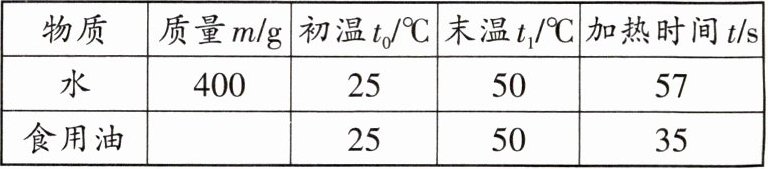 物质 质量m/g 初温t₀/℃ 末温t₁/℃ 加热时间t/s
水 400 25 50 57
食用油 25 50 35